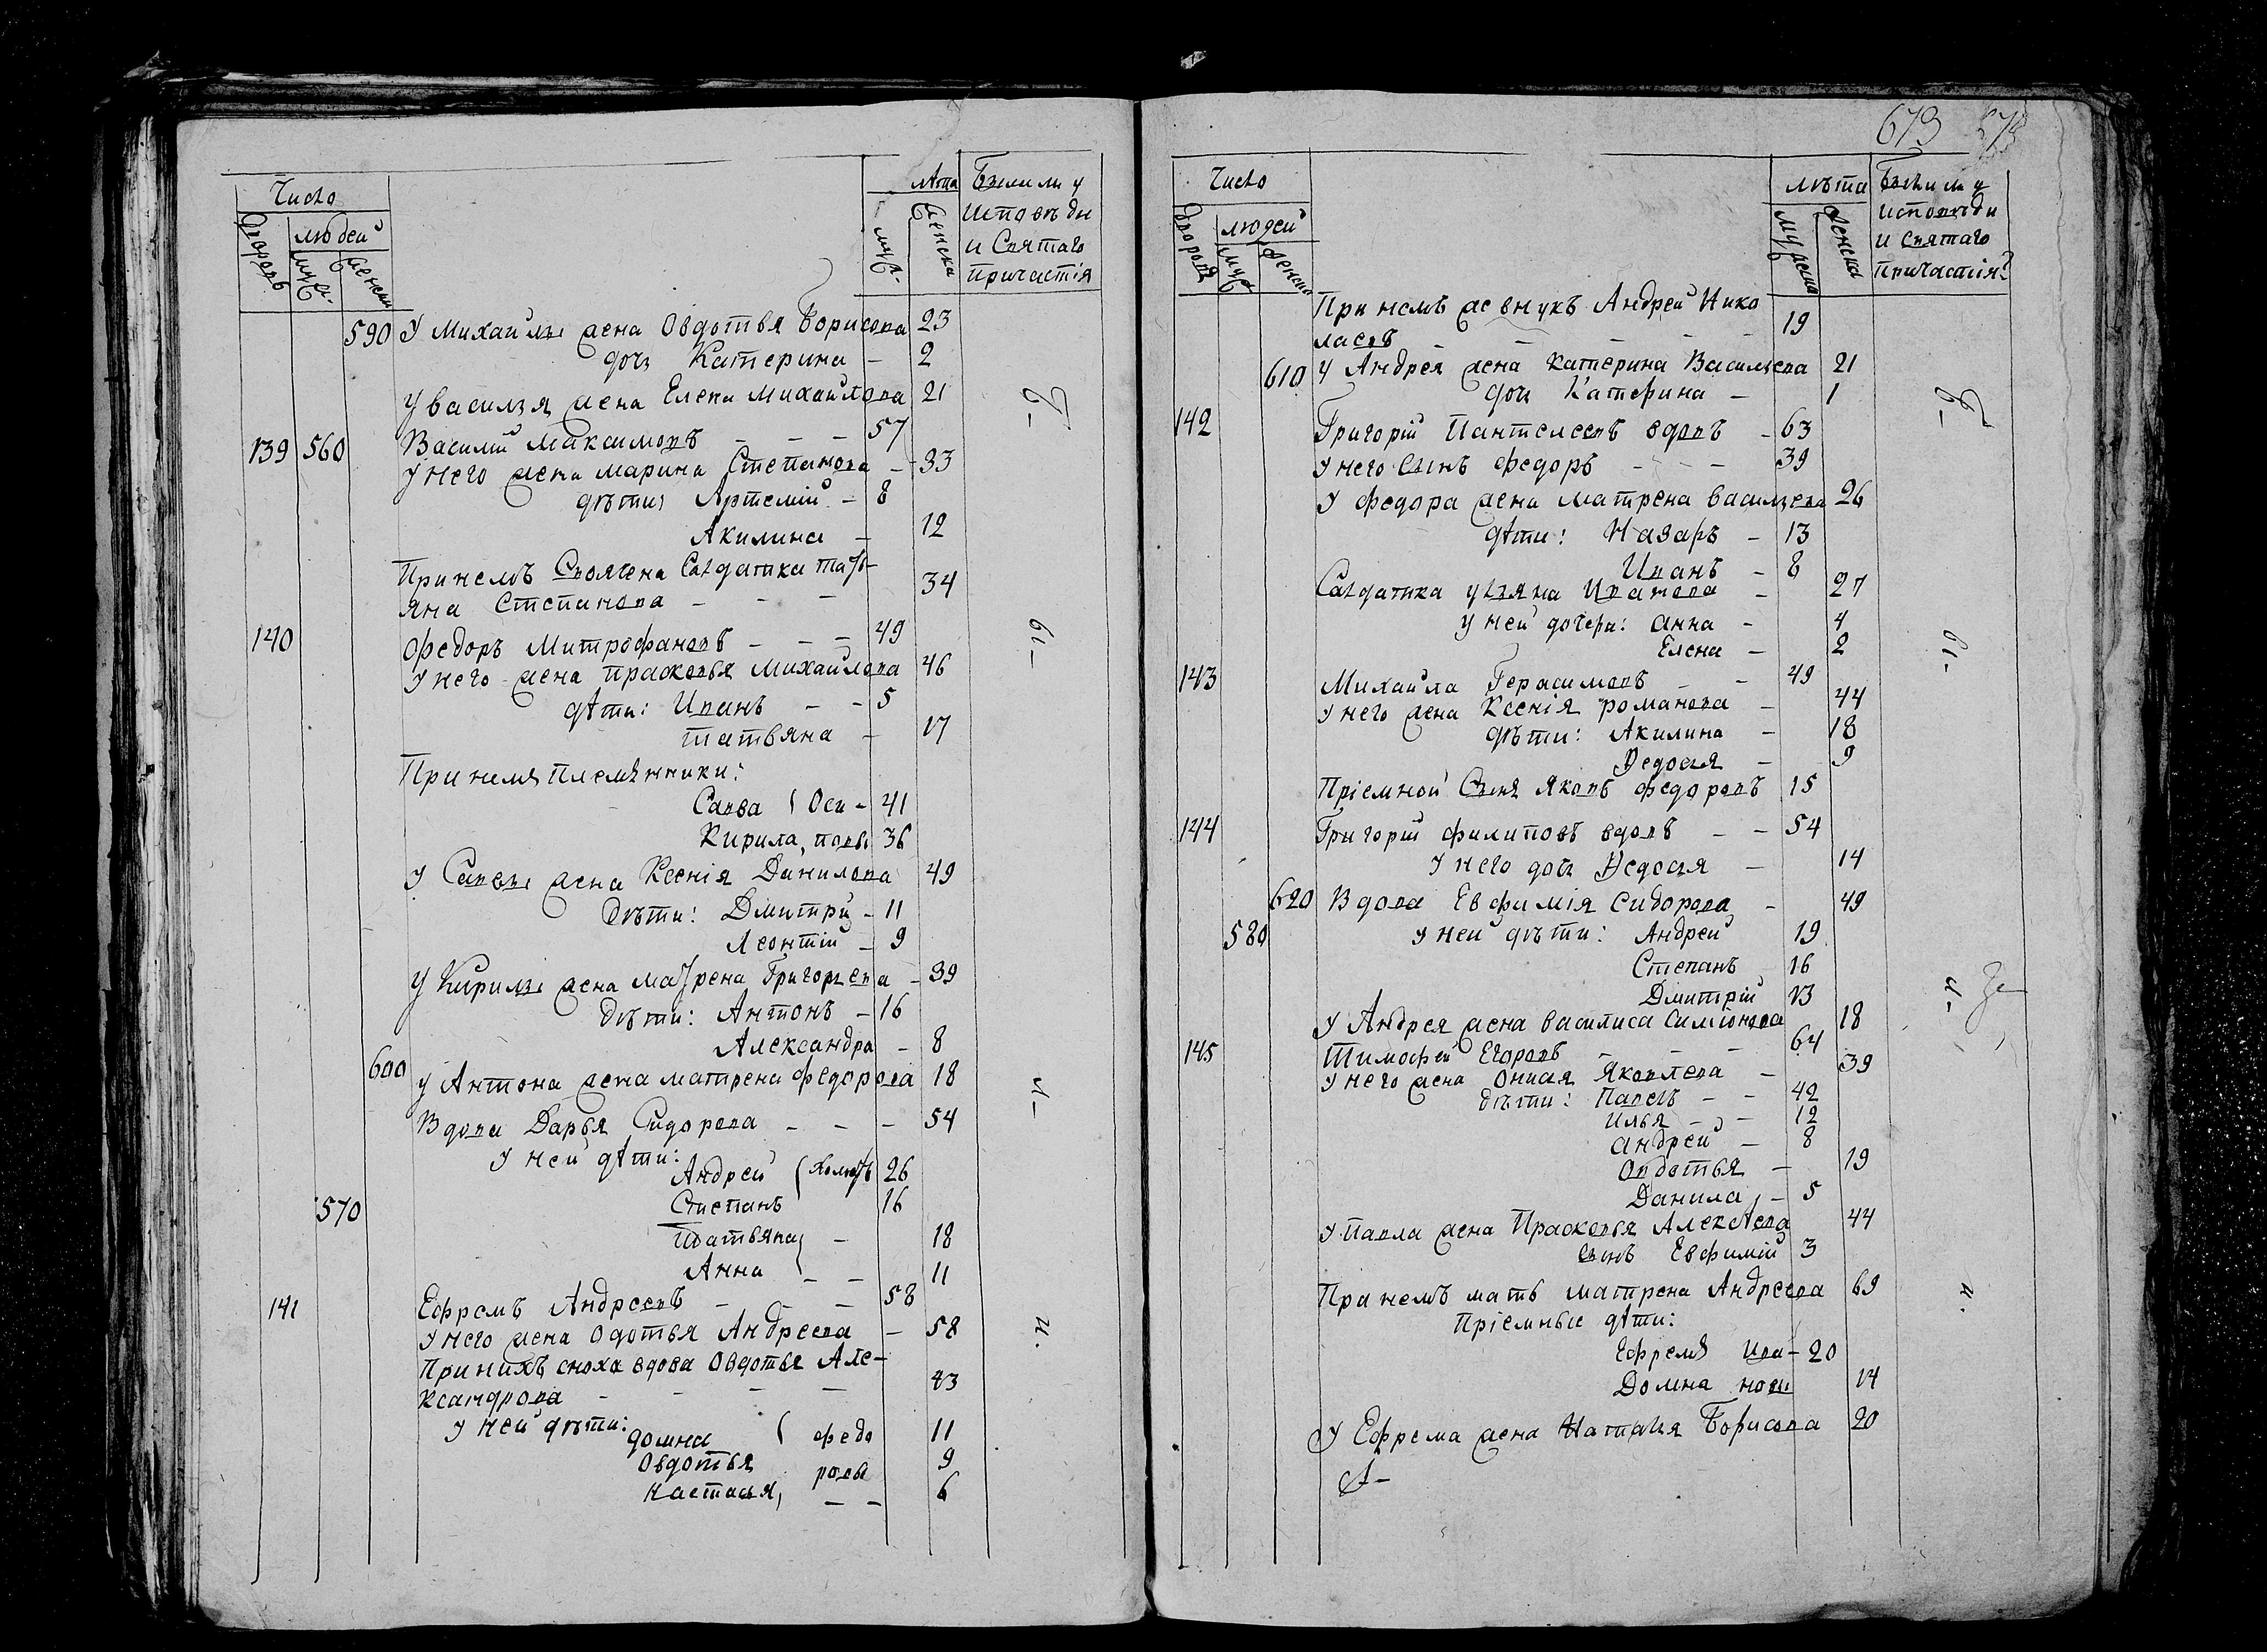 Число
лѣта
Были ли у
Исповѣди
и Святаго
Причастія
дворовъ
людей
муж.
женска
муж.
женска
590 У Михайлы жена Овдотья Борисова 23
дочь Катерина – 2
У василья жена Елена Михайлова 21
139 560 Василий Максимовъ – – – 57
У него жена марина Степанова – 33
дѣти: Артемій – 8
Акилина – 12
При немъ Своячена Салдатка Тать-
яна Степанова – – – 34
140 Федоръ Митрофановъ – – – 49
У него жена прасковья Михайлова 46
дѣти: Иванъ – – 5
Татьяна – 17
При немъ Племянники:
Савва Оси – 41
Кирила, повы 36
У Саввы жена Ксенія Данилова 49
Дѣти: Дмитрій – 11
Леонтій – 9
У Кирилы жена матрена Григорьева – 39
Дѣти: Антонъ – 16
Александра – 8
600 у Антона жена матрена Федорова 18
Вдова Дарья Сидорова – – – 54
У ней дѣти:
Андрей 26
570 Степанъ 16
Татьяна – 18
Анна – – 11
141 Ефремъ Андреевъ – – – 58
У него жена Одотья Андреева – 58
При нихъ сноха вдова Овдотья Але-
ксандрова – – – – 43
У ней дѣти: домна федо 11
Овдотья ровы 9
Настасья, – – 6
д-
ѣ-
й-
и.
673
Число
лѣта
Были ли у
исповѣди
и святаго
причастія?
дворовъ
людей
муж
женска
мужеска
женска
При немъ же внукъ Андрей Нико
лаевъ – – – – 19
610 У Андрея жена Катерина Васильева 21
дочь Катерина – 1
142 Григорій Пантелеевъ вдовъ – 63
У него Сынъ Федоръ – – – 39
У Федора жена Матрена васильева 26
дѣти: Назаръ – 13
Иванъ – 8
Салдатка ульяна Иванова – 27
У ней дочери: анна – 4
Елена – 2
143 Михайла Герасимовъ – – 49
У него жена Ксенія романова – 44
дѣти: Акилина – 18
Федосья – 9
Пріемной Сынъ Яковъ Федоровъ 15
144 Григорій Филиповъ вдовъ – – 54
У него дочь Федосья – 14
620 Вдова Евфимія Сидорова – 49
580 У ней дѣти: Андрей 19
Степанъ 16
Дмитрій 13
У Андрея жена василиса Симіонова 18
145 Тимофей Егоровъ – – – 64
У него жена Онисья Яковлева – 39
Дѣти: Павелъ – – 42
Илья – – 12
андрей – 8
Овдотья – 19
Данила – 5
У Павла жена Прасковья Алексѣева 44
сынъ Евфимій 3
При немъ мать матрена Андреева 69
Пріемные дѣти:
Ефремъ Ива – 20
Домна новы 14
У Ефрема жена Наталья Борисова 20
д-
й-
и.